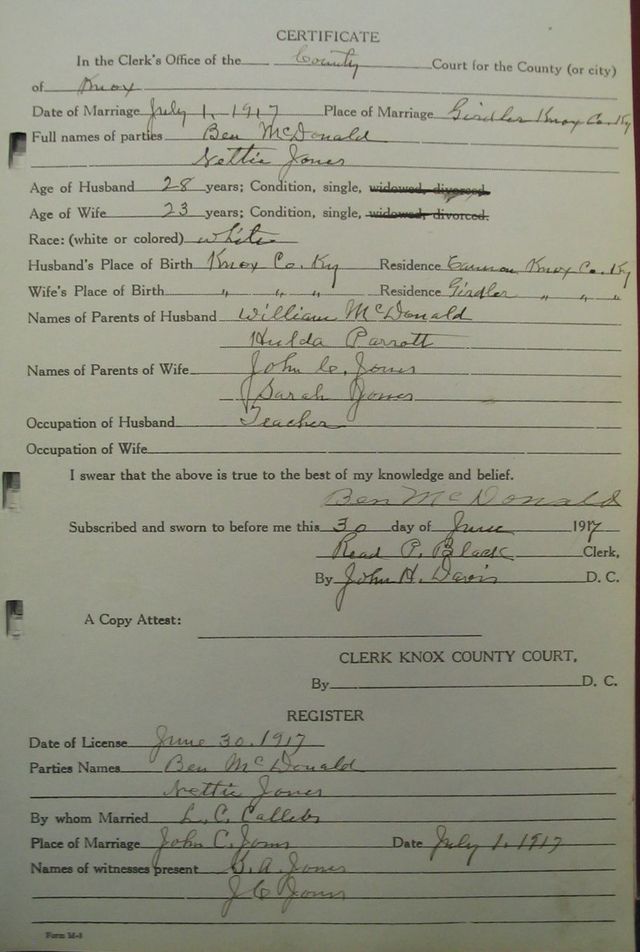 CERTIFICATE
In the Clerk's Office of the County Court for the County (or city)
of Knox
Date of Marriage July 1, 1917 Place of Marriage Girdler Knox Co. Ky
Full names of parties Ben McDonald
Nettie Jones
Age of Husband 28 years; Condition, single, widowed, divorced.
Age of Wife 23 years; Condition, single, widowed, divorced.
Race: (white or colored) white
Husband's Place of Birth Knox Co. Ky Residence Cannon Knox Co. Ky
Wife's Place of Birth " " " Residence Girdler " " "
Names of Parents of Husband William McDonald
Hulda Parrott
Names of Parents of Wife John C. Jones
Sarah Jones
Occupation of Husband Teacher
Occupation of Wife
I swear that the above is true to the best of my knowledge and belief.
Ben McDonald
Subscribed and sworn to before me this 30 day of June 1917
Read P. Black Clerk,
By John H. Davis D. C.
A Copy Attest:
CLERK KNOX COUNTY COURT,
By D. C.
REGISTER
Date of License June 30, 1917
Parties Names Ben McDonald
Nettie Jones
By whom Married L. C. Callebs
Place of Marriage John C. Jones Date July 1, 1917
Names of witnesses present A. Jones
J C Jones
Form M-1